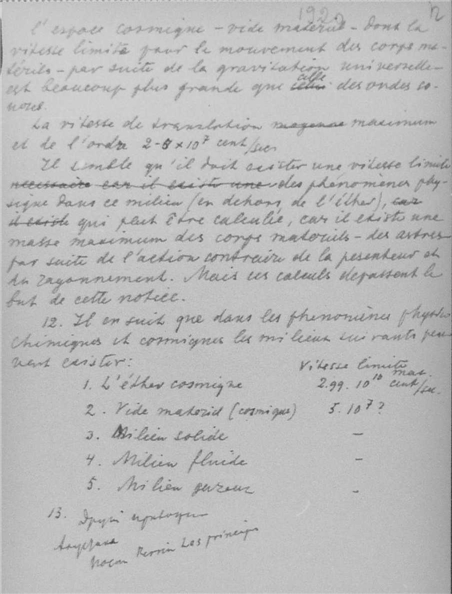 192
12
l'espace cosmique – vide matériel – dont la
vitesse limite pour le mouvement des corps ma-
tériels – par suite de la gravitation universelle –
est beaucoup plus grande que celle des ondes so-
nores.
La vitesse de translation maximum
et de l'ordre 2-5×10⁷ cent/sec
Il semble qu'il doit exister une vitesse limite
nécessaire car il existe une des phénomènes phy-
sique dans ce milieu (en dehors de l'éther), car
il existe qui peut être calculée, car il existe une
masse maximum des corps materiels – des astres
par suite de l'action contraire de la pesanteur et
du rayonnement. Mais ces calculs dépassent le
but de cette notice.
12. Il en suit que dans les phénomènes physico
chimiques et cosmiques les milieux suivants peu-
vent exister:
Vitesse limite
max.
1. L'éther cosmique 2.99.10¹⁰ cent/sec.
2. Vide materiel (cosmique) 5.10⁷?
3. Milieu solide –
4. Milieu fluide –
5. Milieu gazeux –
13.
Perrin Les principes